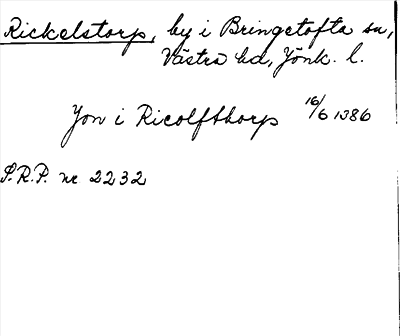 Rickelstorp, by i Bringetofta sn,
Västra hd, Jönk. l.
Jon i Ricolfthorp 16/6 1386
S.R.P. nr 2232